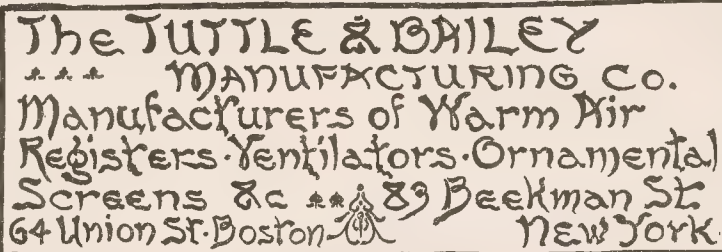 The TUTTLE & BAILEY
MANUFACTURING Co.
Manufacturers of Warm Air
Registers · Ventilators · Ornamental
Screens &c 83 Beekman St
64 Union St. Boston New York.